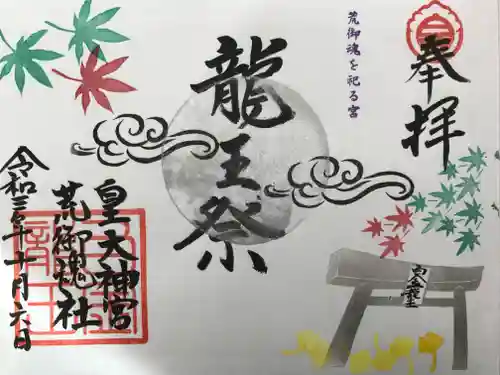 奉拝
荒御魂を祀る宮
龍王祭
皇大神宮
荒御魂社
令和三年十月六日